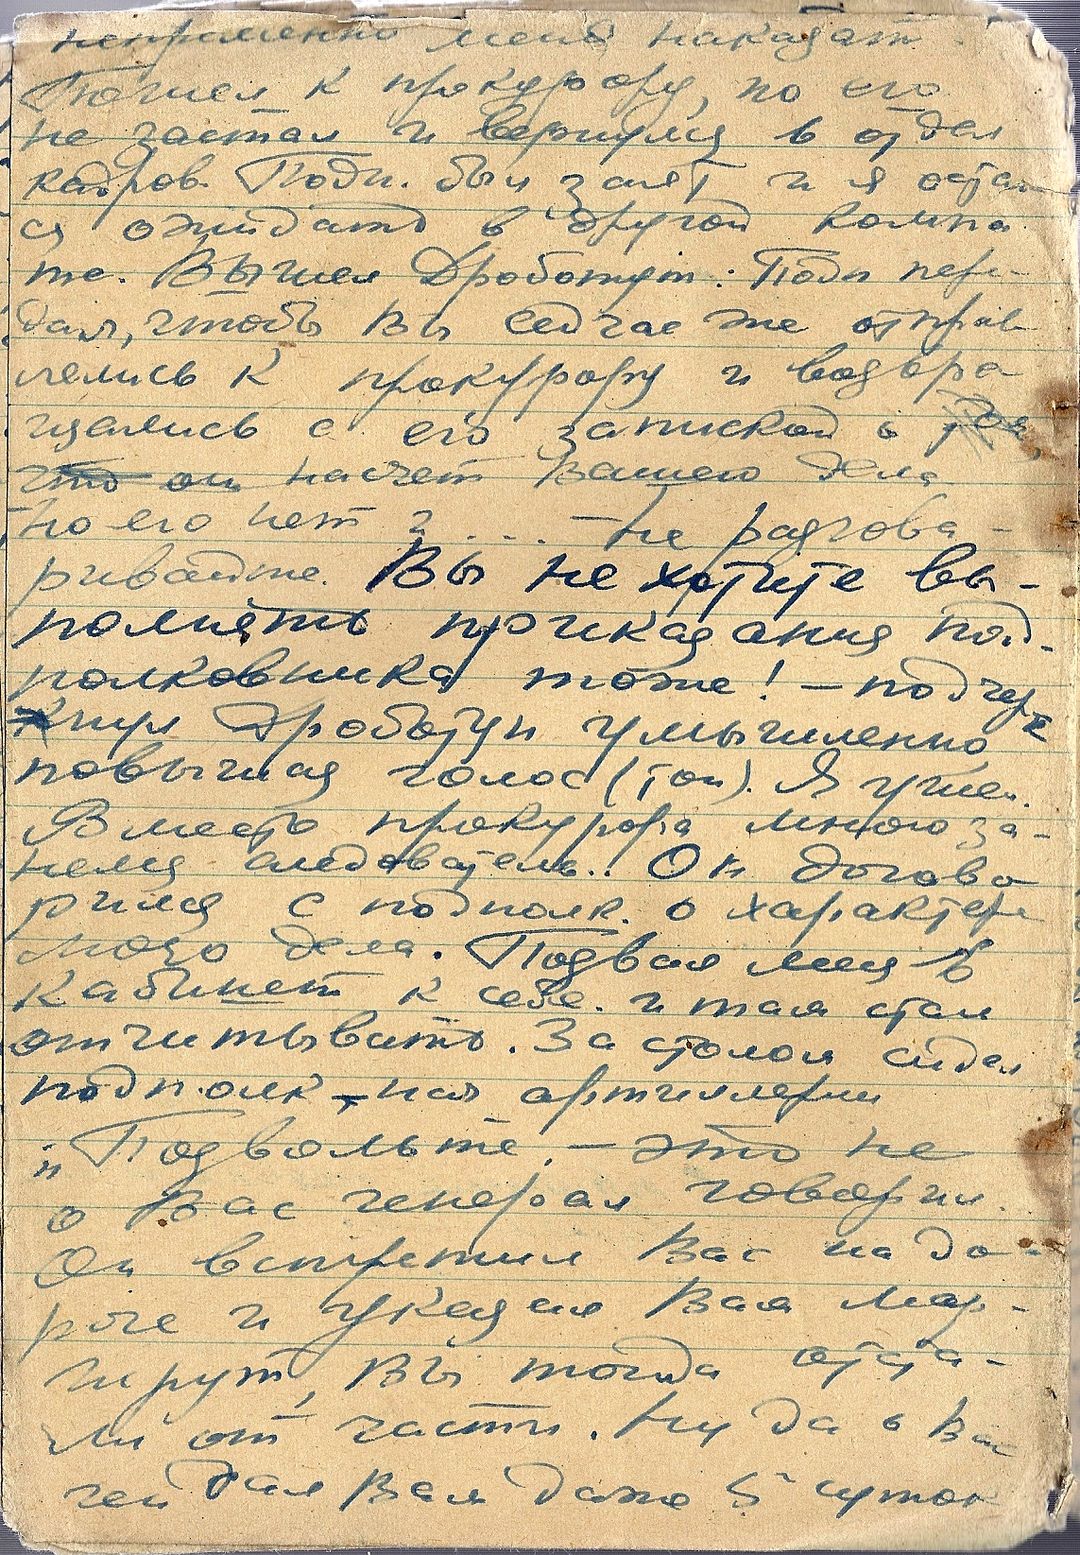 непременно меня наказать.
Пошел к прокурору, но его
не застал и вернулся в отдел
кадров. Подп. был занят и я остал
ся ожидать в другой комна
те. Вышел Дроботун: Подп пере-
дал, чтобы Вы сейчас же отправ
лялись к прокурору и возвра
щались с его запиской о
что он насчет Вашего дела
но его нет ? .... – Не разгова-
ривайте. Вы не хотите вы-
полнять приказания под-
полковника тоже! – подчерк
нул Дроботун умышленно
повышая голос (тон). Я ушел.
Вместо прокурора мною за-
нялся следователь.. Он догово
рился с подполк. о характере
моего дела. Позвал меня в
кабинет к себе и там стал
отчитывать. За столом сидел
подполк-ик артиллерии
„Позвольте, – это не
о Вас генерал говорил.
Он встретил Вас на до-
роге и указал Вам мар-
шрут, Вы тогда отста-
ли от части. Ну да о Вас
ген дал Вам даже 5 суток